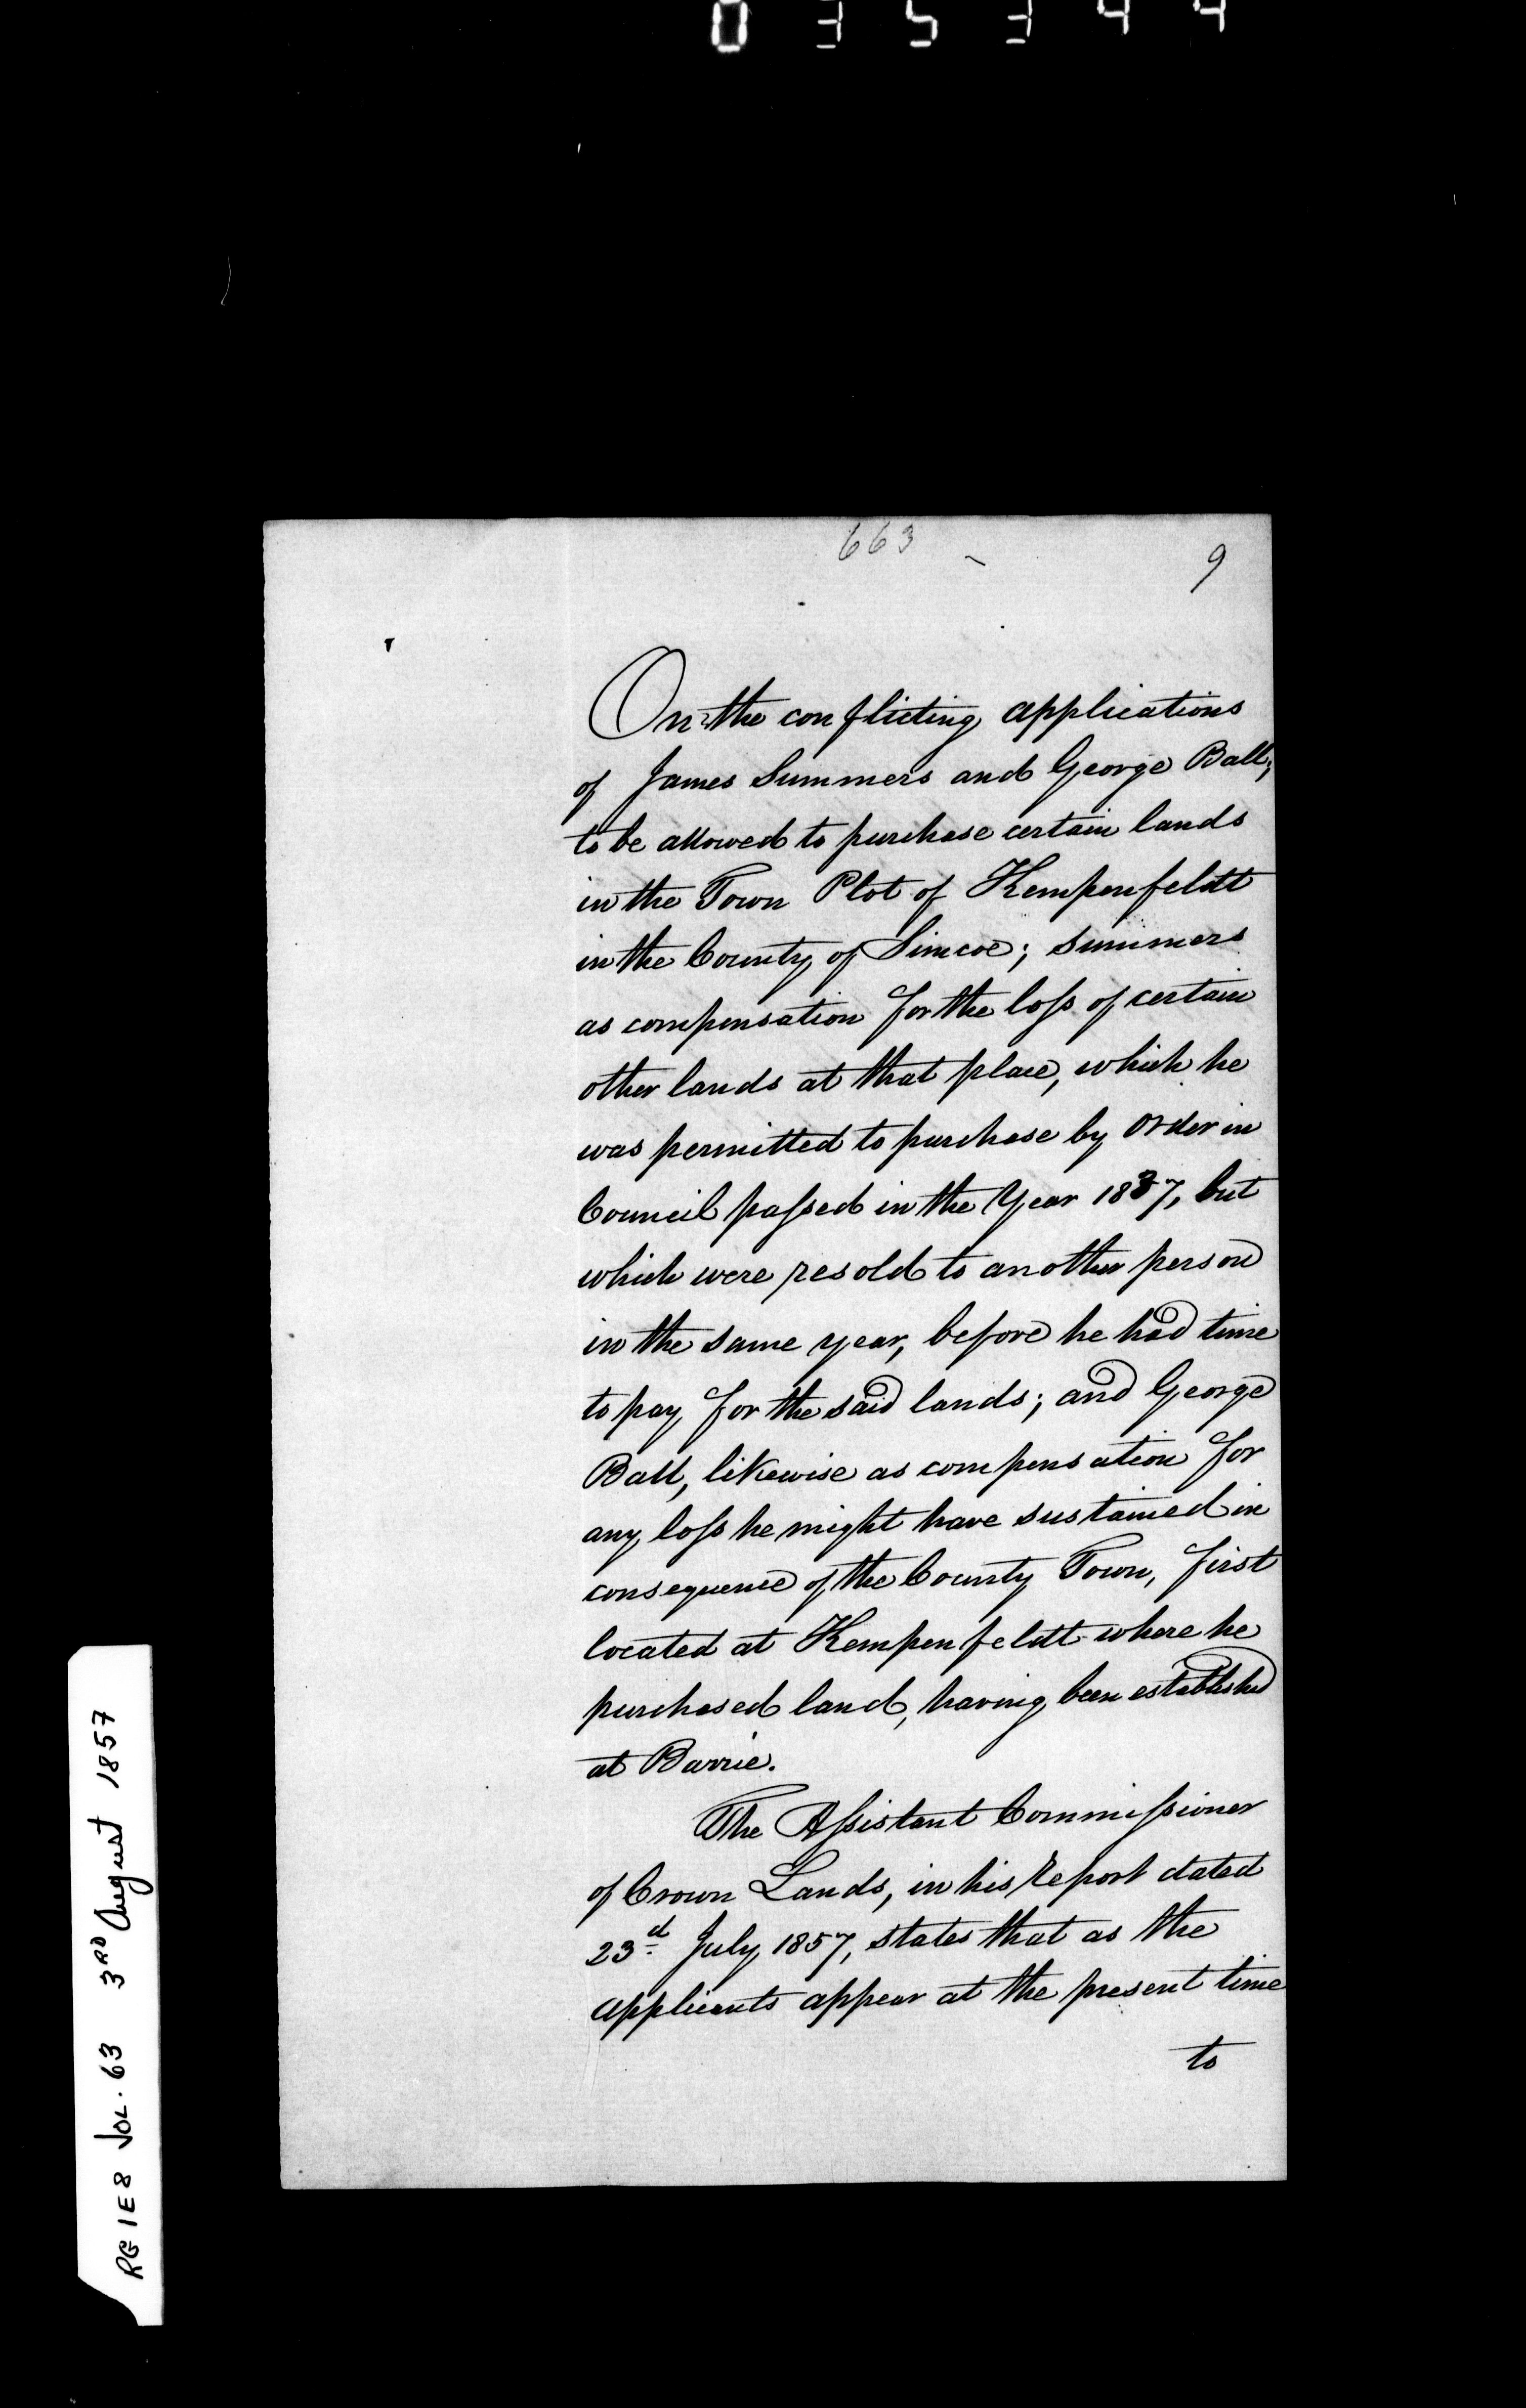 035344
663
9
On the conflicting applications
of James Summers and George Ball,
to be allowed to purchase certain lands
in the Town Plot of Kempenfeldt
in the County of Simcoe; Summers
as compensation for the loſs of certain
other lands at that place, which he
was permitted to purchase by Order in
Council paſsed in the Year 1837, but
which were resold to another person
in the same year, before he had time
to pay for the said lands; and George
Ball, likewise as compensation for
any loſs he might have sustained in
consequence of the County Town, first
located at Kempenfeldt where he
purchased land, having been established
at Barrie.
The Aſsistant Commiſsioner
of Crown Lands, in his report dated
23d July 1857, states that as the
applicants appear at the present time
to
RG 1 E 8 VOL. 63 3RD August 1857